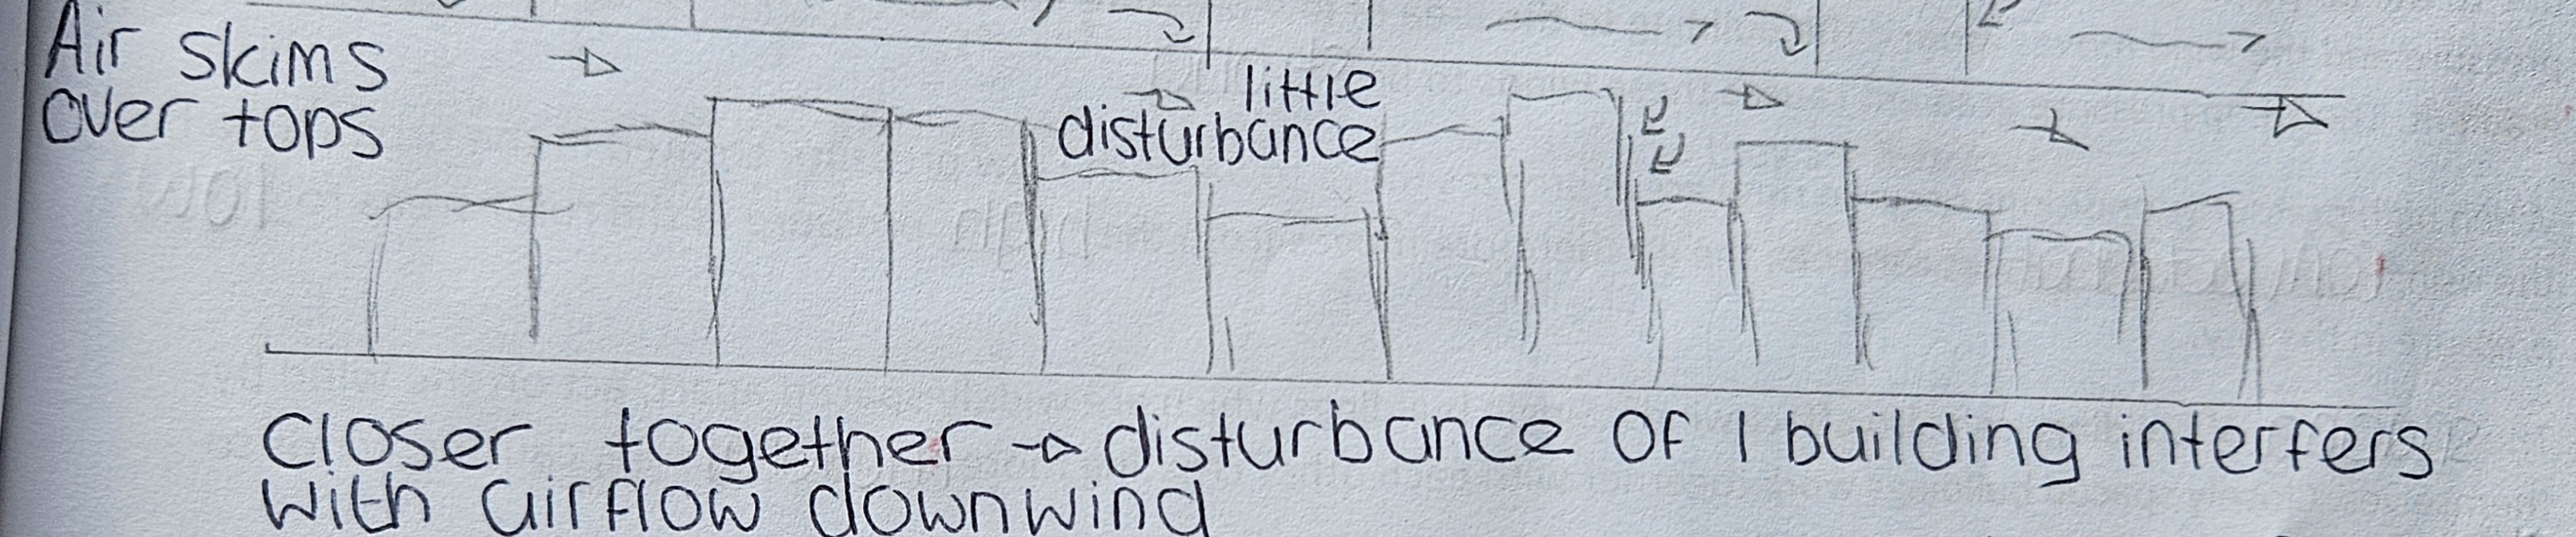 Air skims
over tops
little
disturbance
closer together → disturbance of 1 building interfers
with airflow downwind